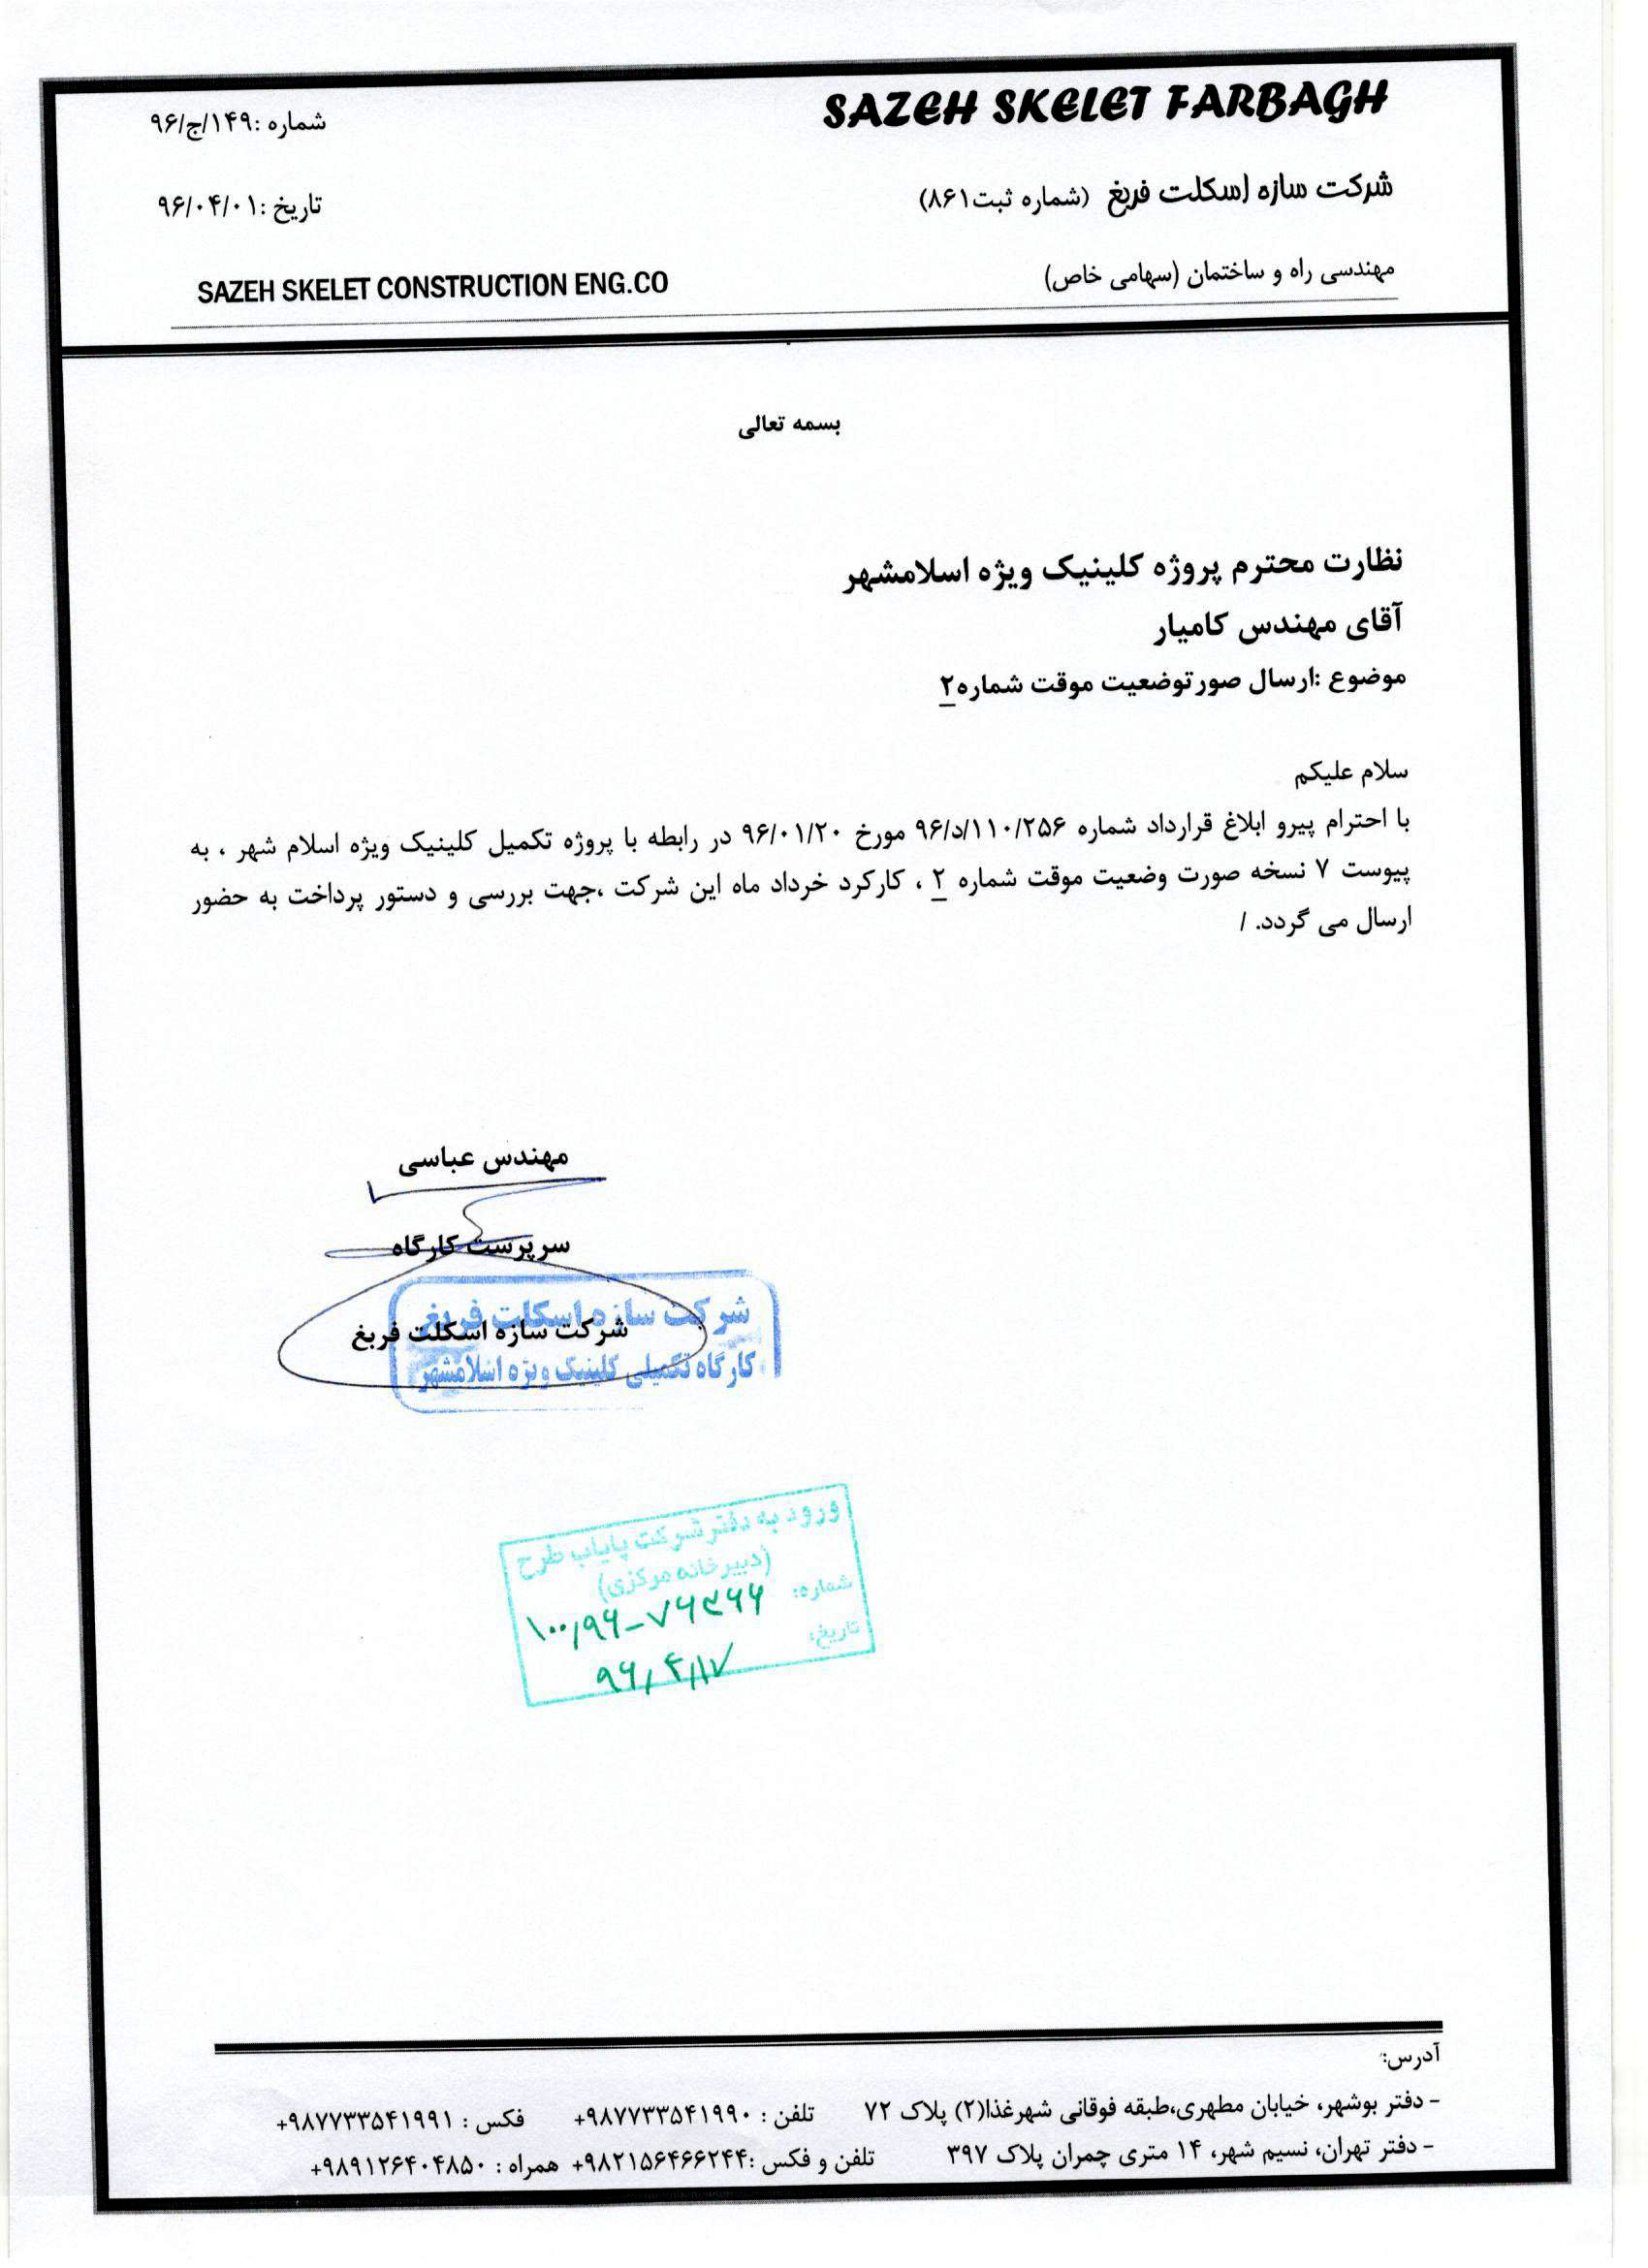 SAZEH SKELET FARBAGH
شماره :۱۴۹/ج/۹۶
شرکت سازه اسکلت فربغ (شماره ثبت۸۶۱)
تاریخ :۹۶/۰۴/۰۱
مهندسی راه و ساختمان (سهامی خاص)
SAZEH SKELET CONSTRUCTION ENG.CO
بسمه تعالی
نظارت محترم پروژه کلینیک ویژه اسلامشهر
آقای مهندس کامیار
موضوع :ارسال صورتوضعیت موقت شماره۲
سلام علیکم
با احترام پیرو ابلاغ قرارداد شماره ۹۶/د/۱۱۰/۲۵۶ مورخ ۹۶/۰۱/۲۰ در رابطه با پروژه تکمیل کلینیک ویژه اسلام شهر ، به
پیوست ۷ نسخه صورت وضعیت موقت شماره ۲ ، کارکرد خرداد ماه این شرکت ،جهت بررسی و دستور پرداخت به حضور
ارسال می گردد. /
مهندس عباسی
سرپرست کارگاه
شرکت سازه اسکلت فربغ
شرکت سازه اسکلت فربغ
کارگاه تکمیلی کلینیک ویژه اسلامشهر
ورود به دفتر شرکت پایاب طرح
(دبیرخانه مرکزی)
شماره:
تاریخ: ۹۶/۴/۱۷
آدرس:
- دفتر بوشهر، خیابان مطهری،طبقه فوقانی شهرغذا(۲) پلاک ۷۲ تلفن : ۹۸۷۷۳۳۵۴۱۹۹۰+ فکس : ۹۸۷۷۳۳۵۴۱۹۹۱+
- دفتر تهران، نسیم شهر، ۱۴ متری چمران پلاک ۳۹۷ تلفن و فکس :۹۸۲۱۵۶۴۶۶۲۴۴+ همراه : ۹۸۹۱۲۶۴۰۴۸۵۰+